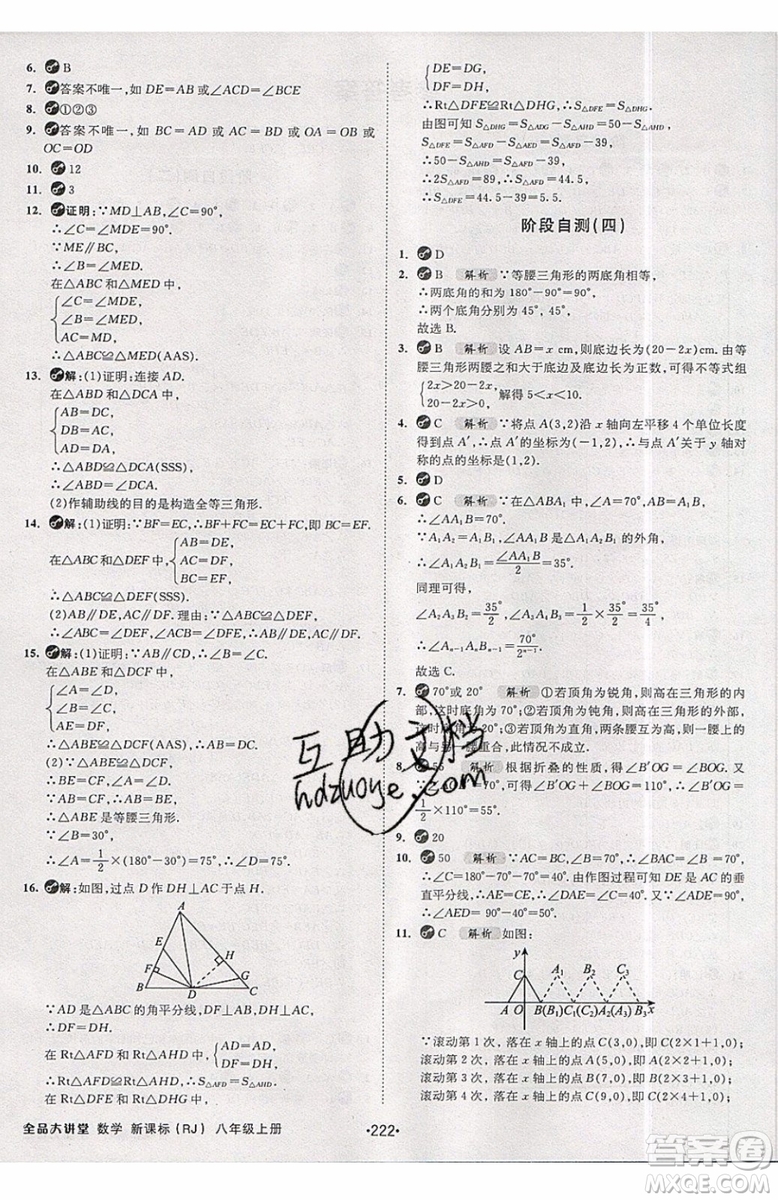 6. B
7. 答案不唯一,如 DE=AB 或∠ACD=∠BCE
8. ①②③
9. 答案不唯一,如 BC=AD 或 AC=BD 或 OA=OB 或
OC=OD
10. 12
11. 3
12. 证明:∵MD⊥AB,∠C=90°,
∴∠C=∠MDE=90°.
∵ME∥BC,
∴∠B=∠MED.
在△ABC 和△MED 中,
∠C=∠MDE,
∠B=∠MED,
AC=MD,
∴△ABC≌△MED(AAS).
13. 解:(1)证明:连接 AD.
在△ABD 和△DCA 中,
AB=DC,
DB=AC,
AD=DA,
∴△ABD≌△DCA(SSS).
∴∠B=∠C.
(2)作辅助线的目的是构造全等三角形.
14. 解:(1)证明:∵BF=EC,∴BF+FC=FC+EC,即 BC=EF.
在△ABC 和△DEF 中,
AB=DE,
AC=DF,
BC=EF,
∴△ABC≌△DEF(SSS).
(2)AB∥DE,AC∥DF. 理由:∵△ABC≌△DEF,
∴∠ABC=∠DEF,∠ACB=∠DFE,∴AB∥DE,AC∥DF.
15. 解:(1)证明:∵AB∥CD,∴∠B=∠C.
在△ABE 和△DCF 中,
∠A=∠D,
∠B=∠C,
AE=DF,
∴△ABE≌△DCF(AAS).
∴AB=CD.
(2)∵△ABE≌△DCF,
∴AB=CD,BE=CF.
∵AB=CF,∠B=30°,
∴AB=BE.
∴△ABE 是等腰三角形.
又∵∠B=30°,
∴∠A=1/2×(180°−30°)=75°,∴∠D=∠A=75°.
16. 解:如图,过点 D 作 DH⊥AC 于点 H.
A
E
H
F
G
B
D
C
∵AD 是△ABC 的角平分线,DF⊥AB,DH⊥AC,
∴DF=DH.
在 Rt△AFD 和 Rt△AHD 中,
AD=AD,
DF=DH,
∴Rt△AFD≌Rt△AHD,∴S△AFD=S△AHD.
在 Rt△DFE 和 Rt△DHG 中,
DE=DG,
DF=DH,
∴Rt△DFE≌Rt△DHG,∴S△DFE=S△DHG.
由图可知 S△DHG=S△ADG−S△AHD=50−S△AHD,
S△DFE=S△AFD−S△AED=S△AFD−39,
∴50−S△AHD=S△AFD−39,
∴2S△AFD=89,∴S△AFD=44.5,
∴S△DFE=44.5−39=5.5.
阶段自测(四)
1. D
2. B 解析 ∵等腰三角形的两底角相等,
∴两底角的和为 180°−90°=90°.
∴两个底角分别为 45°,45°.
故选 B.
3. B 解析 设 AB=x cm,则底边长为(20−2x)cm,由
等腰三角形两腰之和大于底边及底边长为正数,可得不等式组
2x>20−2x,
20−2x>0, 解得 5<x<10.
4. C 解析 ∵将点 A(3,2)沿 x 轴向左平移 4 个单位长度
得到点 A′,∴点 A′的坐标为(−1,2),∴与点 A′关于 y 轴对
称的点的坐标是(1,2).
5. D
6. C 解析 ∵在△ABA1 中,∠A=70°,AB=A1B,
∴∠AA1B=70°.
∵A1A2=A1B1,∠AA1B 是△A1A2B1 的外角,
∴∠A1A2B1=∠AA1B/2=35°.
同理可得,
∠A2A3B2=35°/2,∠A3A4B3=1/2×35°/2=35°/4,
∴∠An−1AnBn−1=70°/2ⁿ⁻¹.
故选 C.
7. 70°或 20° 解析 ①若顶角为锐角,则高在三角形的内
部,这时底角为 70°;②若顶角为钝角,则高在三角形的外部,
这时底角为 20°;③若顶角为直角,两条腰互相垂直,腰上的
高与另一腰重合,此情况不成立.
8. 55 解析 根据折叠的性质,得∠B′OG=∠BOG=
1/2×110°=55°.
9. 20
10. 50 解析 ∵AC=BC,∴∠B=∠CAB. 由作图可知 MN 垂
直平分线,∴AE=CE,∴∠A=∠ACE=40°. 又∵∠ADE=90°,
∴∠AED=90°−∠A=50°.
11. C 解析 如图:
y
C
A1
B2
C3
A
O
B(B1)
C1(C2)
A2(A3)
B3
x
∵滚动第 1 次,落在 x 轴上的点 C(3,0),即 C(2×1+1,0);
滚动第 2 次,落在 x 轴上的点 A(5,0),即 A(2×2+1,0);
滚动第 3 次,落在 x 轴上的点 B(7,0),即 B(2×3+1,0);
滚动第 4 次,落在 x 轴上的点 C(9,0),即 C(2×4+1,0);
互助文档
hdzuoye.com
全品大讲堂 数学 新课标(RJ) 八年级上册
·222·
答案圈
MXQE.COM